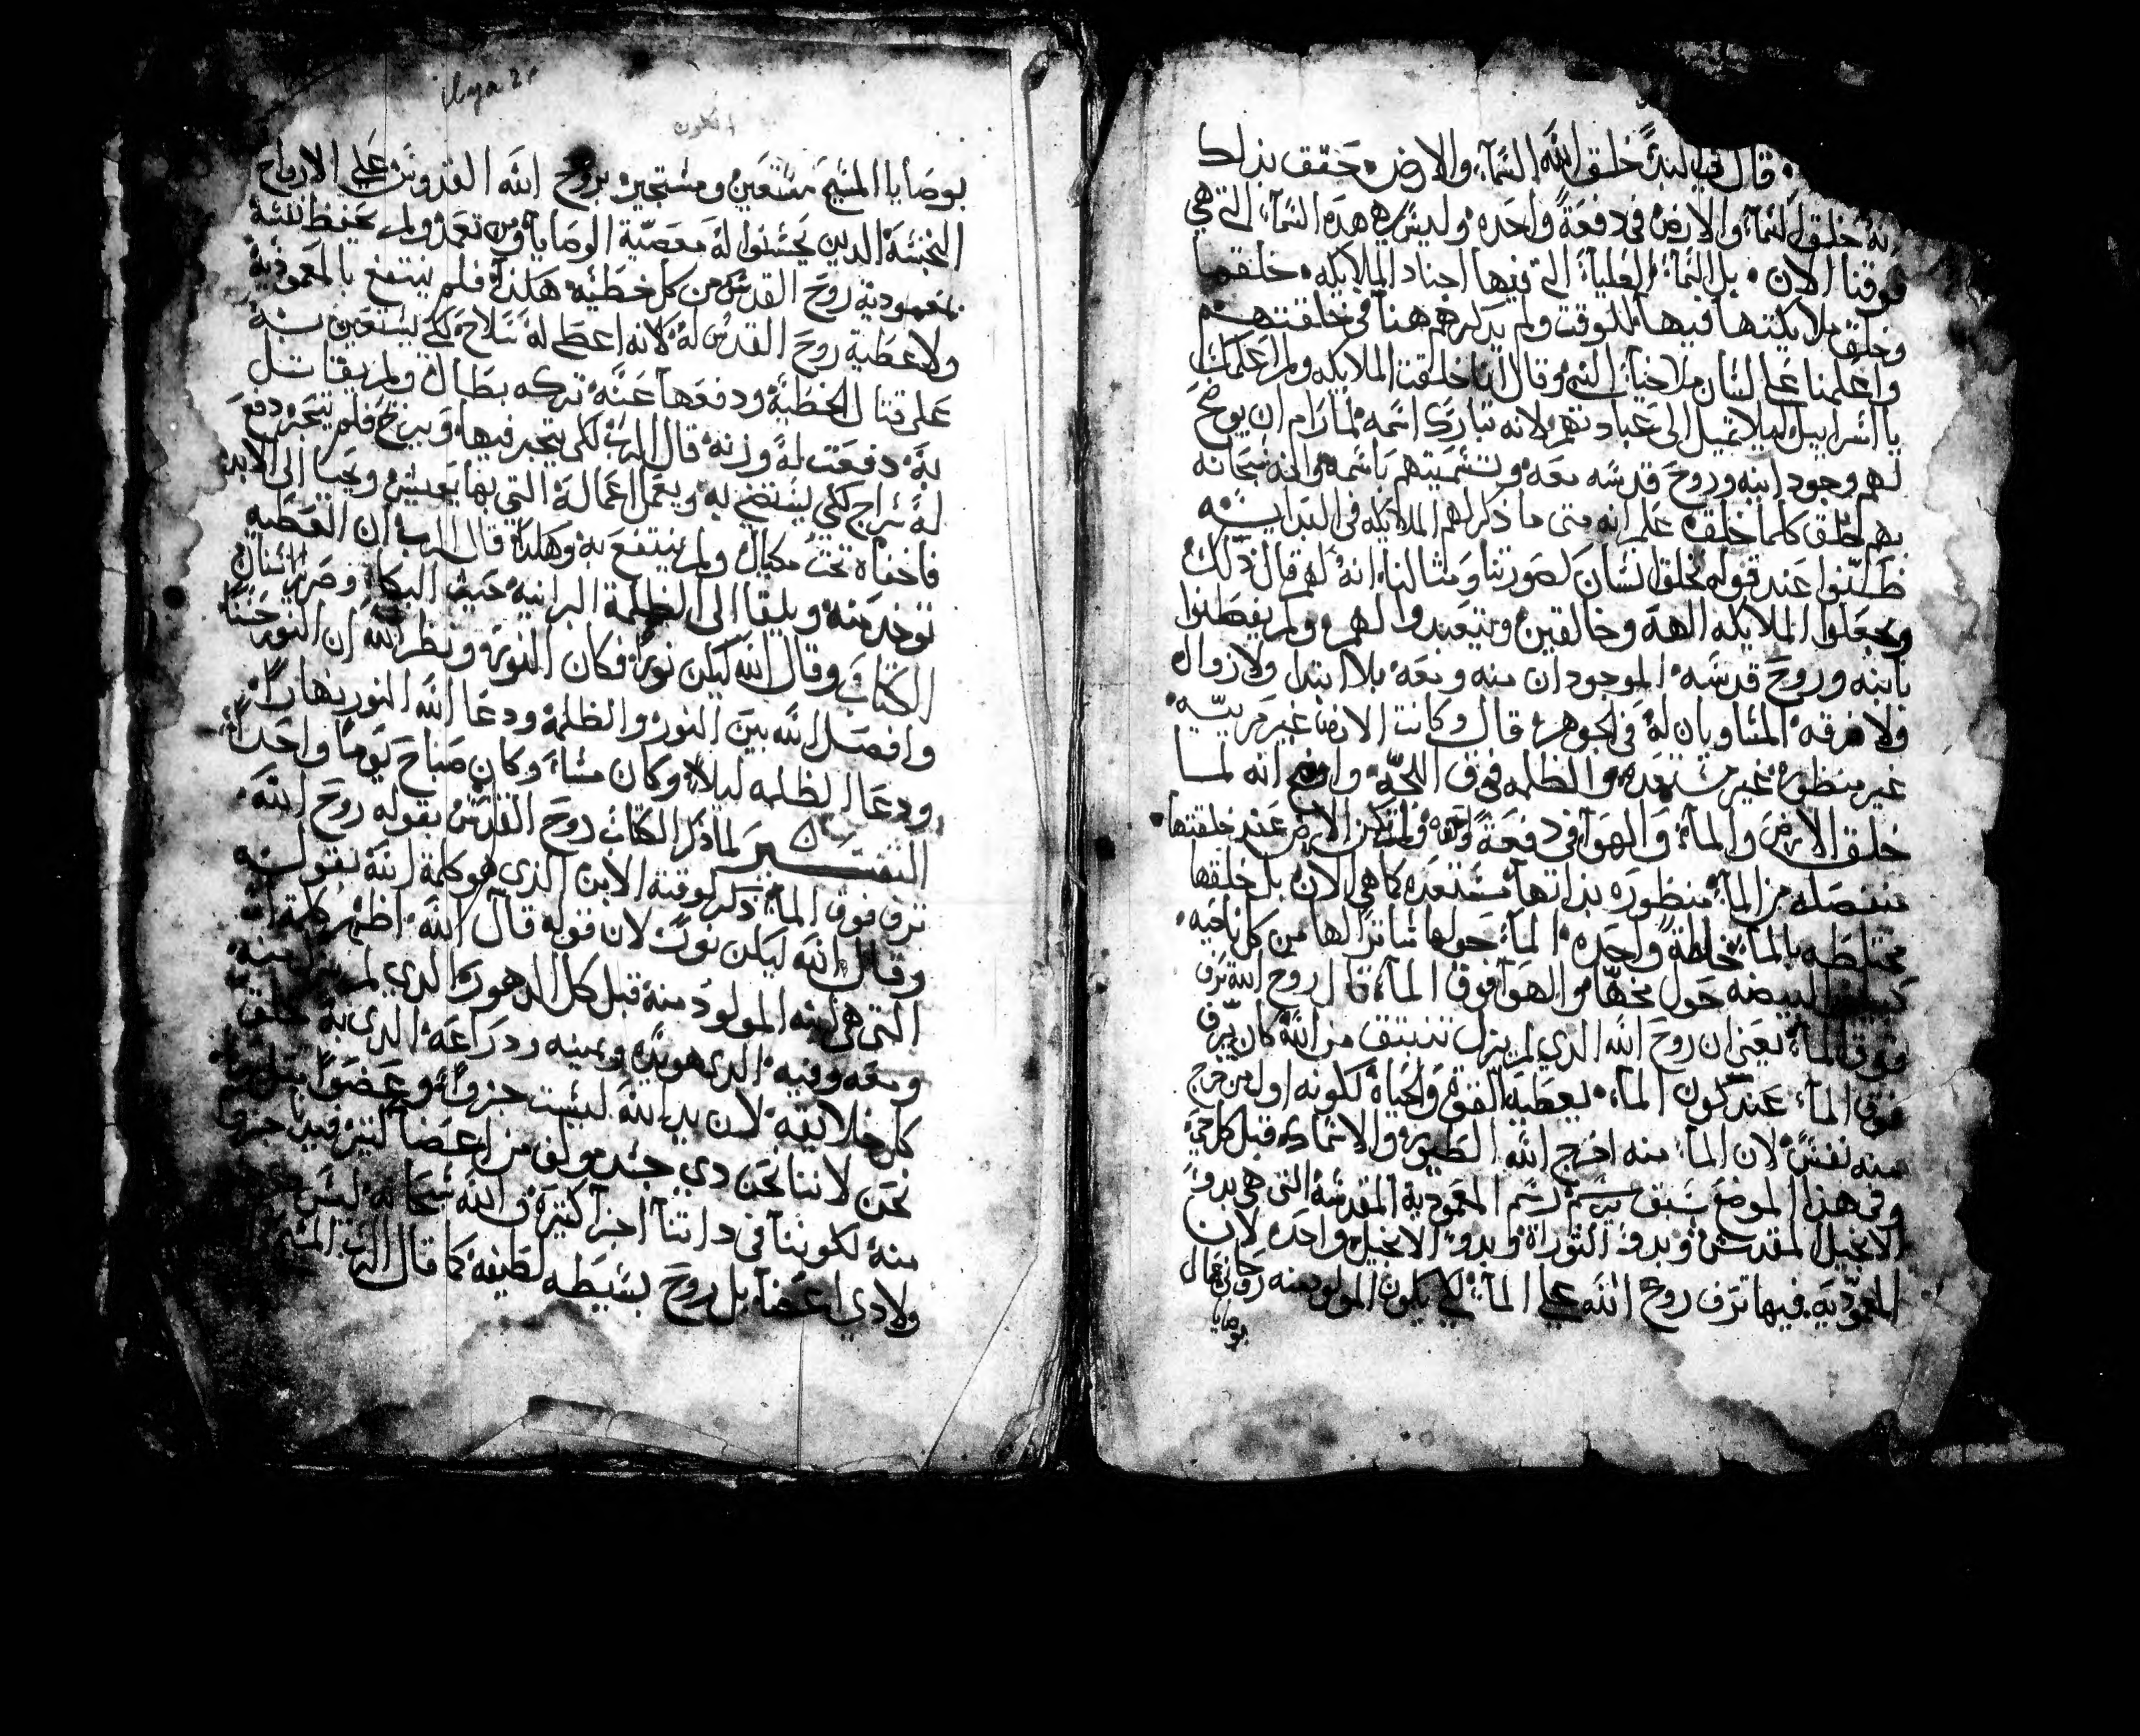 قال في البدئ خلق الله السمآء والارض. حقق بذلك
انه خلق السمآء والارض في دفعةً واحده وليس هي هده السمآء التي هي
فوقنا الان. بل السمآء العليا التي فيها اجناد الملايكه. خلقها
وخلق ملايكتها فيها للوقت ولم يذكرهم هنا في خلقتهم
واعلمنا على لسان ملاخيا النبي وقال انا خلقت الملايكه ولم اعلمك
يا اسراييل ليلا تميل الى عبادتهم لانه تبارك اسمه لما رام ان يوضح
لهم وجود ابنه وروح قدسه معه وتسميتهم باسمه وانه سبحانه
بهم خلق كلما خلق. علم انه متى ما ذكر لهم الملايكه في البدايه
ظنوا عند قوله نخلق انسان لصورتنا ومثالنا. انه لهم قال ذلك
ويجعلوا الملايكه الهه وخالقين ويتعبدوا لهم ولم يفطنوا
بابنه وروح قدسه الموجودان منه ومعه بلا ابتدا ولا زوال
ولا فرقه المساويان له في الجوهر. قال وكانت الارض غير مرييه
غير منظوره غير مستعده والظلمه فوق اللجه. واوضح انه لما
خلق الارض والمآء والهوآ في دفعةً واحده ولم تكن الارض عند خلقتها
منفصله من المآء منظوره بذاتها مستعده كما هي الان بل خلقها
مختلطه بالمآء خلطةً واحده. المآء حولها ساترًا لها من كل ناحيه.
البيضه حول مخها والهوآ فوق المآء. قال روح الله ترف
فوق المآء يعني ان روح الله الذي لم يزل ينبثق من الله كان يرف
فوق المآء عند كون المآء. يعطيه القوة والحياة لكونه اول من خرج
منه نفس لان المآء منه اخرج الله الطيور والاسماك قبل كل حي
وفي هذا الموضع سبق رسم المعمودية المقدسة التي هي بدؤ
الانجيل المقدس وبدؤ التوراة وبدؤ الانجيل واحده لان
المعموديه فيها ترف روح الله على المآء لكي يكون المولود منه روحاني
بوصايا
بوصايا المسيح مستعين ومستجير بروح الله القدوس على الارواح
النجسة الدين يحسنوا له معصية الوصايا ومن تعمد ولم يحفظ نفسه
بمعمودية روح القدس من كل خطيه هكذا فلم ينتفع بالمعمودية
ولا عطية روح القدس له لانه اعطى له سلاح لكي يستعين به
على قتال الخطية ودفعها عنه تركه بطال ولم يقاتل
به. دفعت له وزنة قال الرب لكي يتجر فيها ويربح فلم يتجر. دفع
له سراج لكي يستضي به ويعمل اعماله التي بها يعيش ويحيا الى الابد
فاخفاه تحت مكيال ولم ينتفع به. وهكذا قال الرب ان العطيه
توخد منه ويلقا الى الظلمة البرانية حيث البكاء وصرير الاسنان
الكتاب وقال الله ليكن نور. فكان النور. ونظر الله ان النور حسنًا
وافصل الله بين النور والظلمة ودعا الله النور نهارًا.
ودعا الظلمه ليلا. وكان مساء وكان صباح يومًا واحدًا.
التفسير لما ذكر الكتاب روح القدس بقوله روح الله
ترف فوق المآء ذكر لوقته الابن الذي هو كلمة الله بقوله
وقال الله ليكن نورً لان قوله قال الله اظهر كلمة الله
التي هي ابنه المولود منه قبل كل الدهور الذي لم منه
ومعه وفيه الدي هو يده ويمينه ودراعه الدي به خلق
كل خلايقه لان يد الله ليست جزوًا وعضوًا
نحن لاننا نحن دي جسد مولف من اعضآ كتير
منه لكوننا في داتنا اجزآ كتيرة والله سبحانه ليس
ولا دي اعضآ بل روح بسيطه لطيفه كما قال الرب